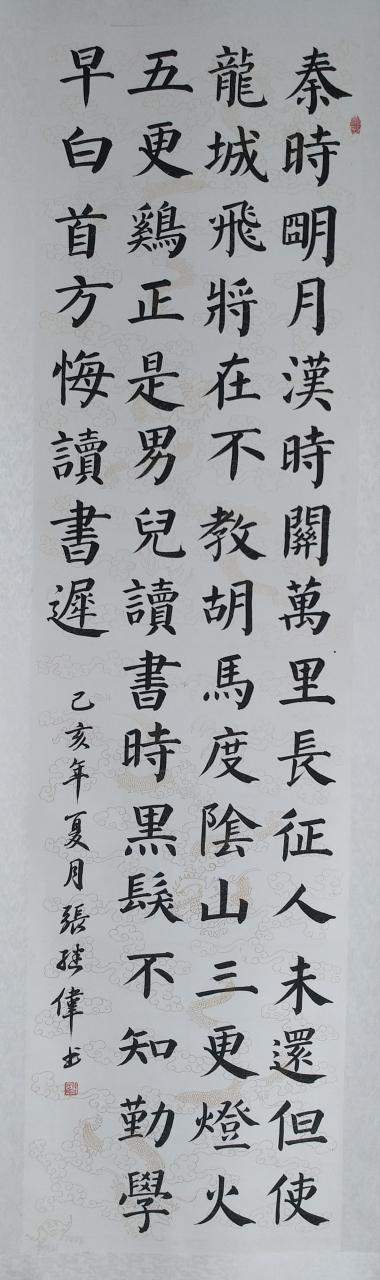 秦時明月漢時關萬里長征人未還但使
龍城飛將在不教胡馬度陰山三更燈火
五更鷄正是男兒讀書時黑髮不知勤學
早白首方悔讀書遲
己亥年夏月張繼偉书